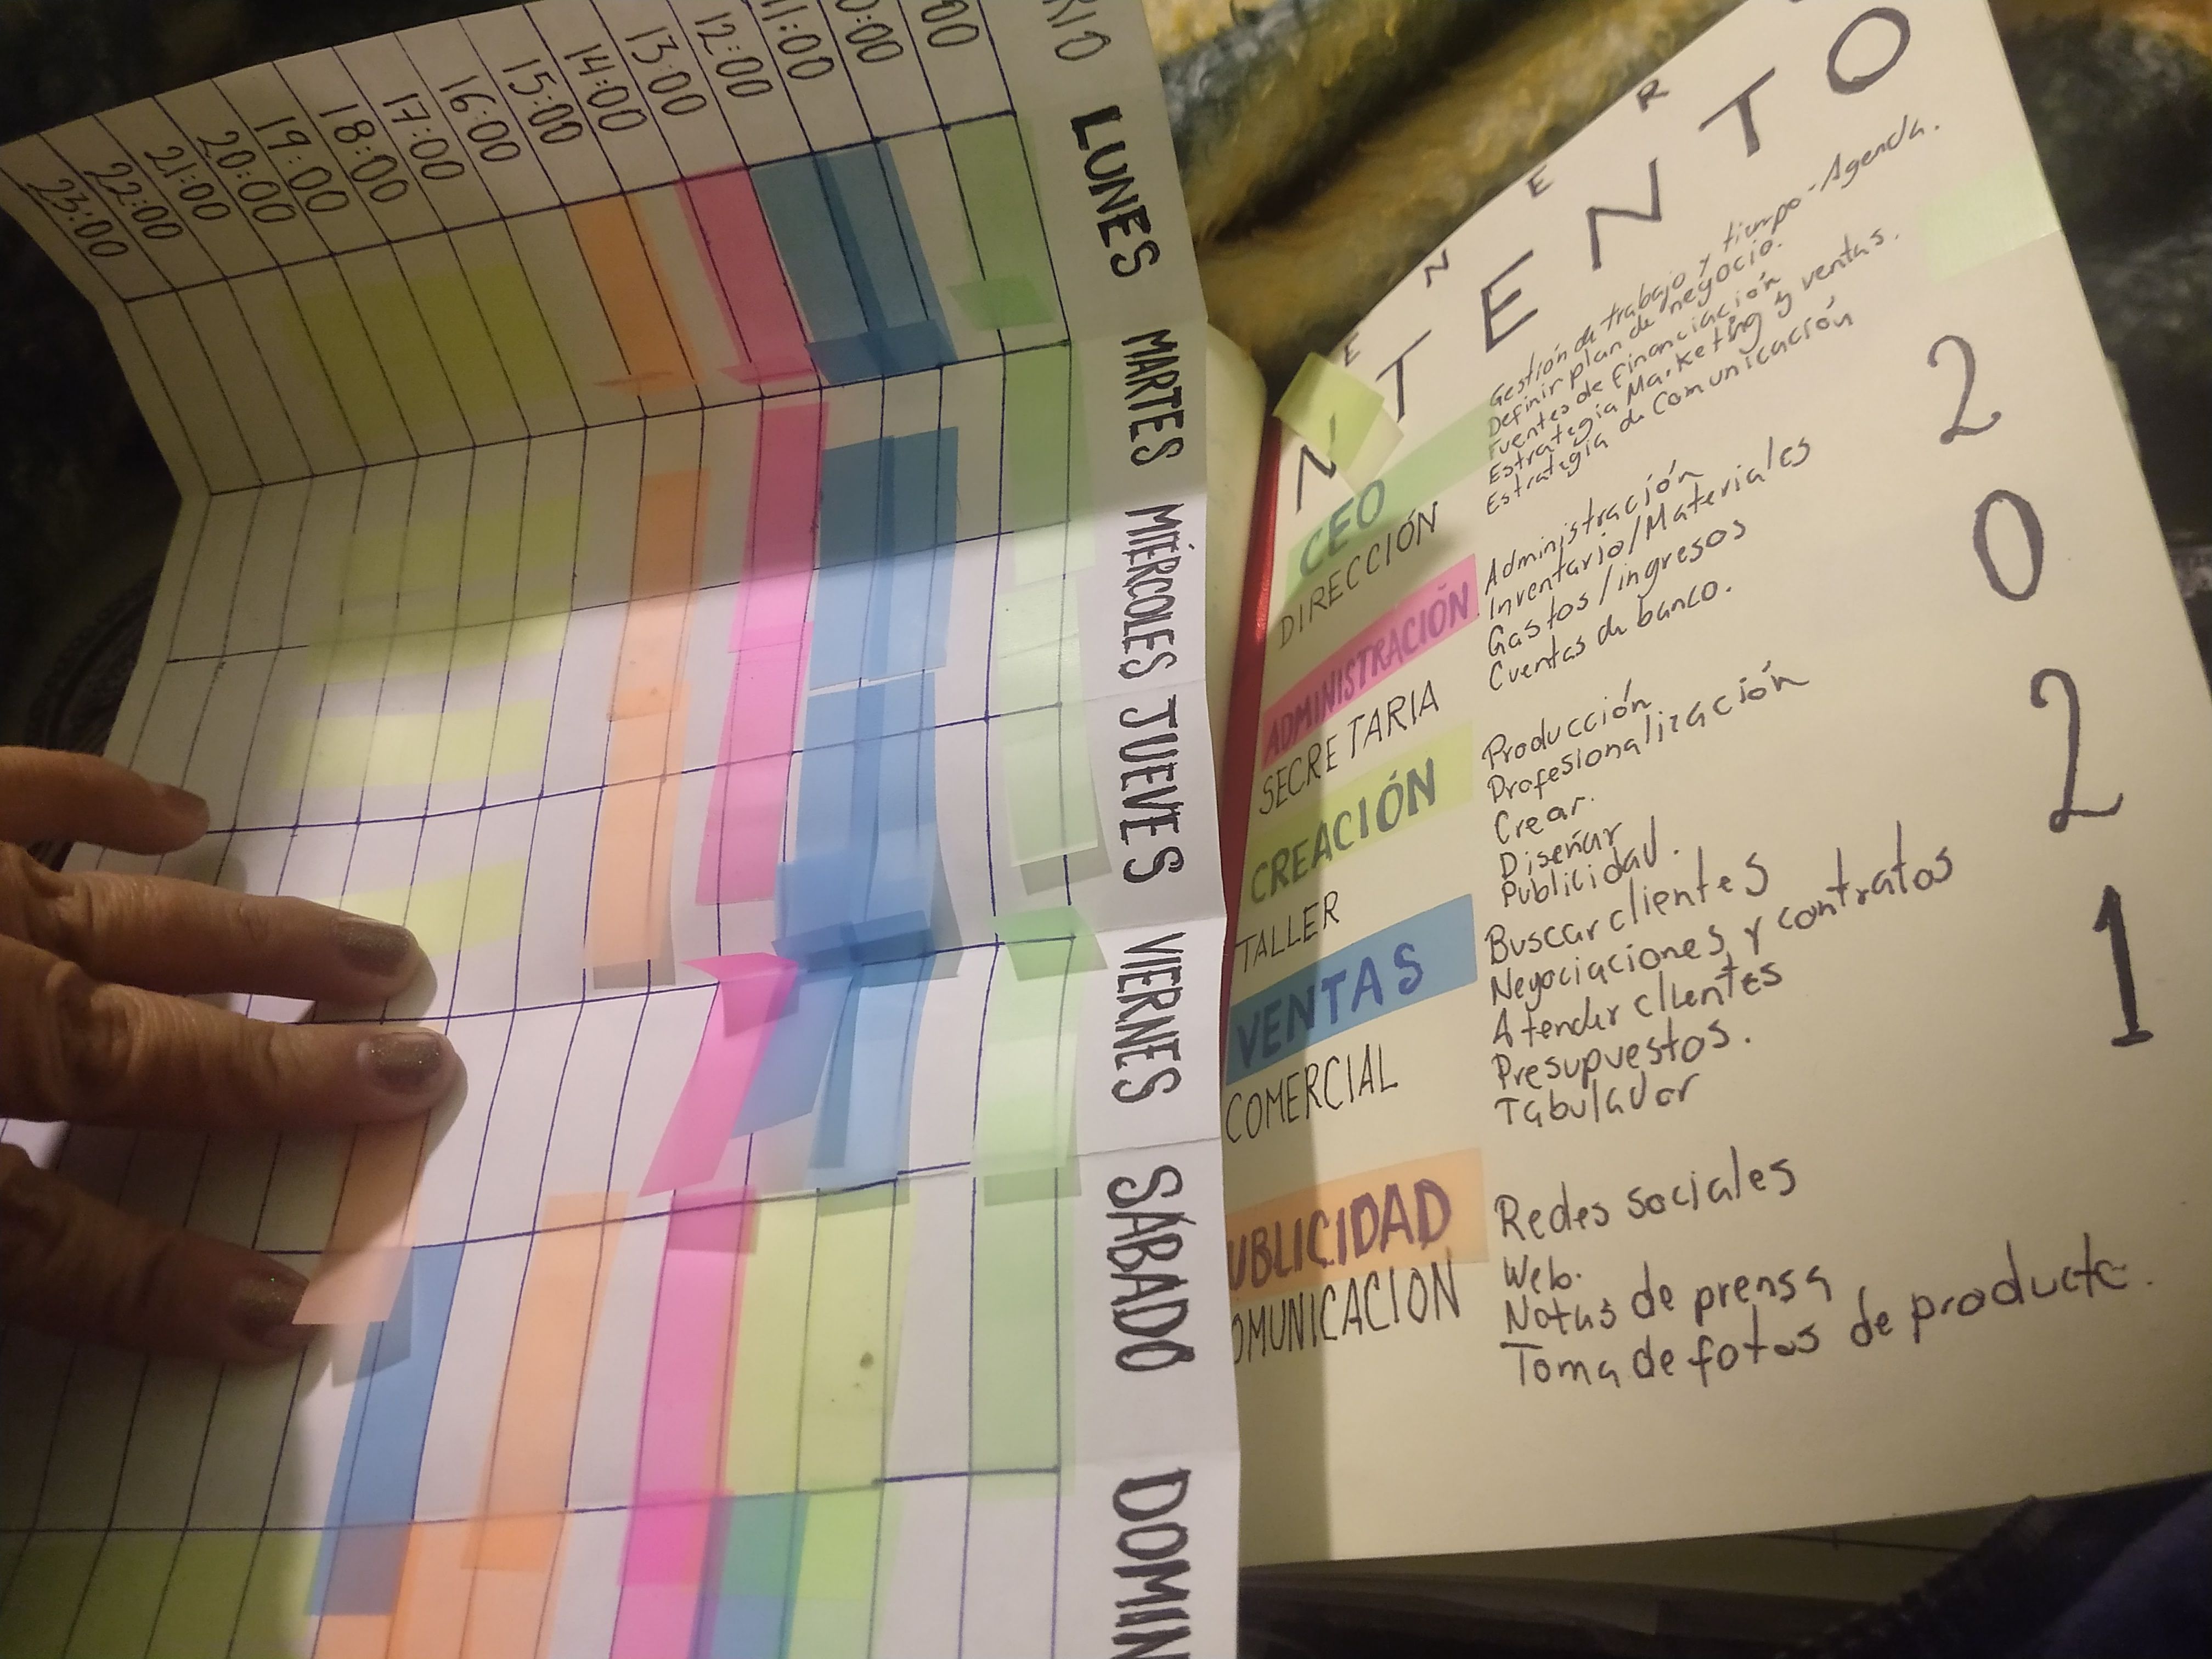 LUNES
MARTES
MIÉRCOLES
JUEVES
VIERNES
SÁBADO
11:00
12:00
13:00
14:00
15:00
16:00
17:00
18:00
19:00
20:00
21:00
22:00
23:00
E N E R
N T E N T O
2
0
2
1
CEO
DIRECCIÓN
Gestión de trabajo y tiempo - Agenda.
Definir plan de negocio.
Fuentes de financiación
Estrategia Marketing y ventas.
Estrategia de Comunicación
ADMINISTRACIÓN
SECRETARIA
Administración
Inventario/Materiales
Gastos/ingresos
Cuentas de banco.
CREACIÓN
TALLER
Producción
Profesionalización
Crear.
Diseñar
Publicidad.
VENTAS
COMERCIAL
Buscar clientes
Negociaciones y contratos
Atender clientes
Presupuestos.
Tabulador
UBLICIDAD
OMUNICACION
Redes sociales
Web.
Notas de prensa
Toma de fotos de producto.